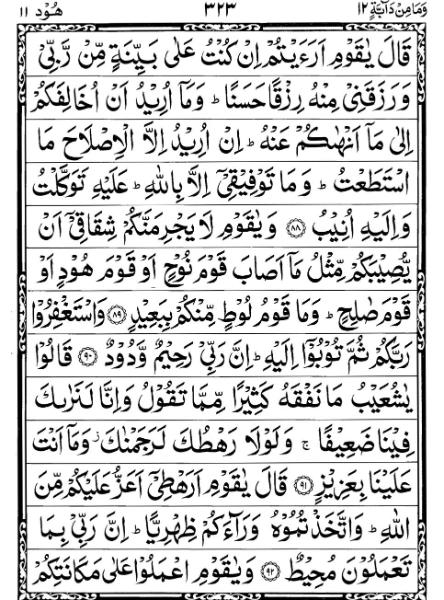 وَمَا مِنْ دَآبَّةٍ ١٢ ٣٢٣ هُوْد ١١
قَالَ يٰقَوْمِ اَرَءَيْتُمْ اِنْ كُنْتُ عَلٰى بَيِّنَةٍ مِّنْ رَّبِّىْ
وَرَزَقَنِىْ مِنْهُ رِزْقًا حَسَنًا ؕ وَمَاۤ اُرِيْدُ اَنْ اُخَالِفَكُمْ
اِلٰى مَاۤ اَنْهٰىكُمْ عَنْهُ ؕ اِنْ اُرِيْدُ اِلَّا الْاِصْلَاحَ مَا
اسْتَطَعْتُ ؕ وَمَا تَوْفِيْقِىْۤ اِلَّا بِاللّٰهِ ؕ عَلَيْهِ تَوَكَّلْتُ
وَاِلَيْهِ اُنِيْبُ ﴿٨٨﴾ وَيٰقَوْمِ لَا يَجْرِمَنَّكُمْ شِقَاقِىْۤ اَنْ
يُّصِيْبَكُمْ مِّثْلُ مَاۤ اَصَابَ قَوْمَ نُوْحٍ اَوْ قَوْمَ هُوْدٍ اَوْ
قَوْمَ صٰلِحٍ ؕ وَمَا قَوْمُ لُوْطٍ مِّنْكُمْ بِبَعِيْدٍ ﴿٨٩﴾ وَاسْتَغْفِرُوْا
رَبَّكُمْ ثُمَّ تُوْبُوْۤا اِلَيْهِ ؕ اِنَّ رَبِّىْ رَحِيْمٌ وَّدُوْدٌ ﴿٩٠﴾ قَالُوْا
يٰشُعَيْبُ مَا نَفْقَهُ كَثِيْرًا مِّمَّا تَقُوْلُ وَاِنَّا لَنَرٰىكَ
فِيْنَا ضَعِيْفًا ۚ وَلَوْلَا رَهْطُكَ لَرَجَمْنٰكَ ؗ وَمَاۤ اَنْتَ
عَلَيْنَا بِعَزِيْزٍ ﴿٩١﴾ قَالَ يٰقَوْمِ اَرَهْطِىْۤ اَعَزُّ عَلَيْكُمْ مِّنَ
اللّٰهِ ؕ وَاتَّخَذْتُمُوْهُ وَرَآءَكُمْ ظِهْرِيًّا ؕ اِنَّ رَبِّىْ بِمَا
تَعْمَلُوْنَ مُحِيْطٌ ﴿٩٢﴾ وَيٰقَوْمِ اعْمَلُوْا عَلٰى مَكَانَتِكُمْ